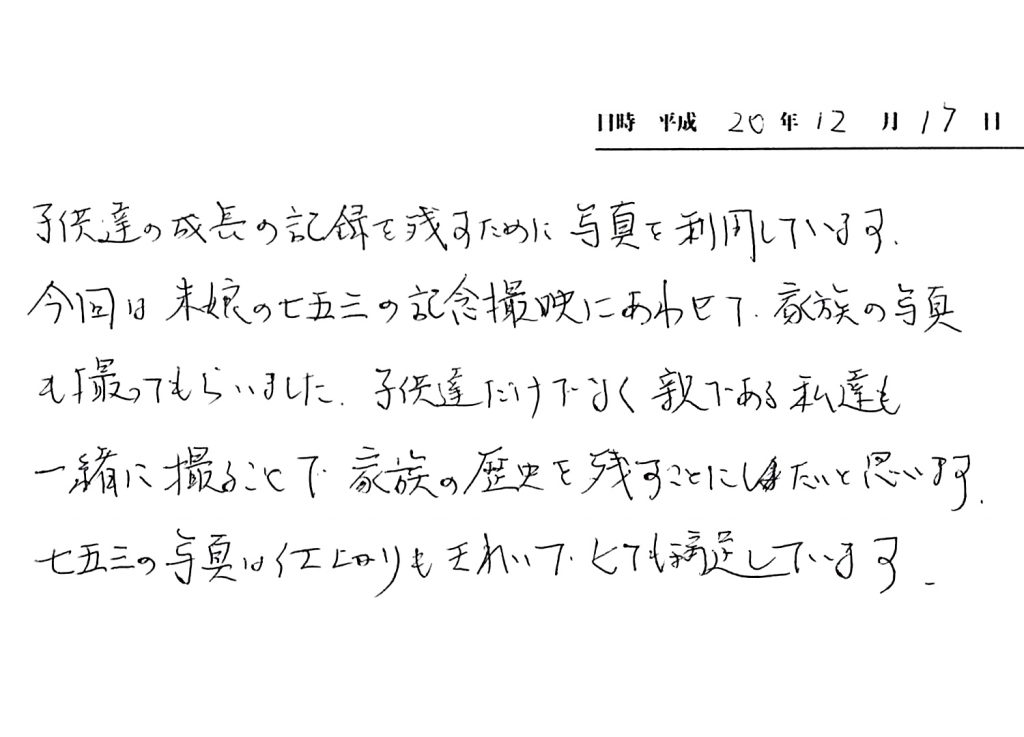 日時 平成 20 年 12 月 17 日
子供達の成長の記録を残すために写真を利用しています.
今回は末娘の七五三の記念撮映にあわせて.家族の写真
も撮ってもらいました.子供達だけでなく親である私達も
一緒に撮ることで家族の歴史を残すことにしたいと思います.
七五三の写真は仕上がりもきれいで.とても満足しています.